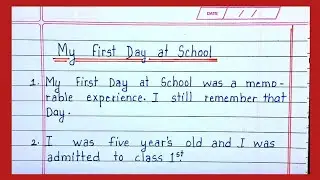 DATE
My First Day at School
1. My First Day at School was a memo-
rable experience. I still remember that
Day.
2. I was five year's old and I was
admitted to class 1st